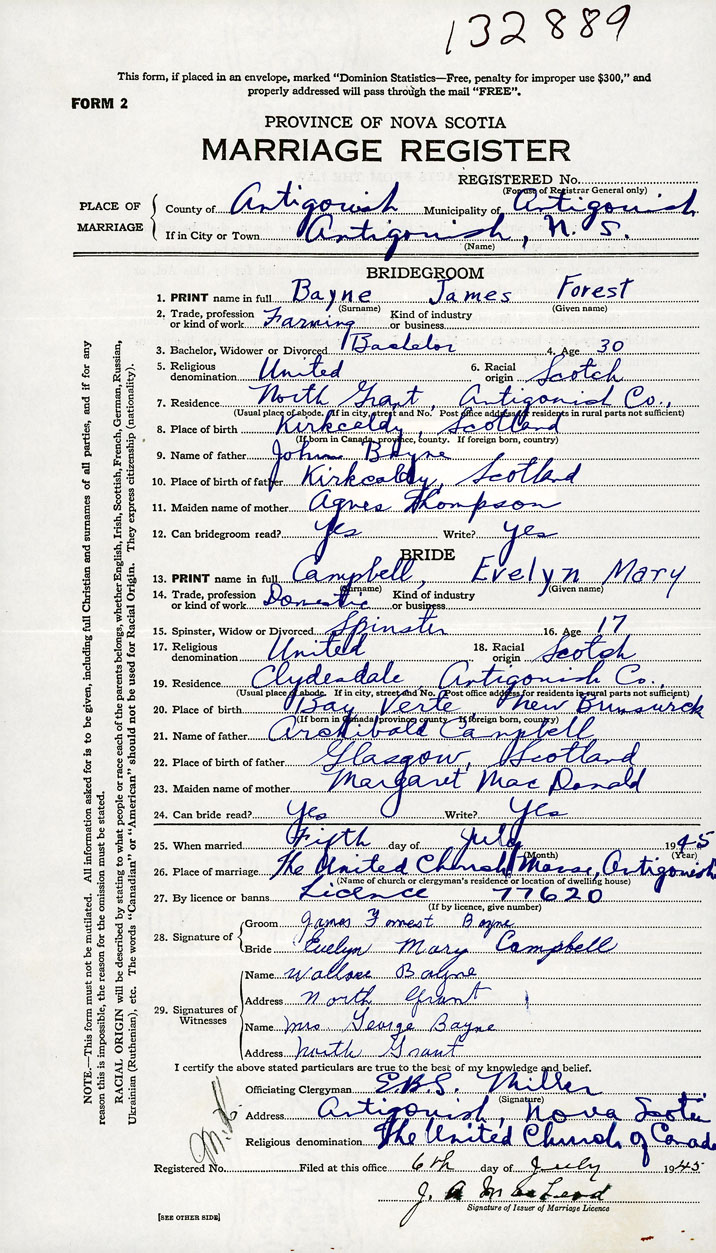 132889
This form, if placed in an envelope, marked "Dominion Statistics—Free, penalty for improper use $300," and
properly addressed will pass through the mail "FREE".
FORM 2
PROVINCE OF NOVA SCOTIA
MARRIAGE REGISTER
REGISTERED No.
(For use of Registrar General only)
PLACE OF MARRIAGE
County of Antigonish Municipality of Antigonish
If in City or Town Antigonish, N. S.
(Name)
BRIDEGROOM
1. PRINT name in full Bayne James Forest
(Surname) (Given name)
2. Trade, profession or kind of work Farming Kind of industry or business
3. Bachelor, Widower or Divorced Bachelor 4. Age 30
5. Religious denomination United 6. Racial origin Scotch
7. Residence North Grant, Antigonish Co.,
(Usual place of abode. If in city, street and No. Post office address for residents in rural parts not sufficient)
8. Place of birth Kirkcaldy, Scotland
(If born in Canada, province, county. If foreign born, country)
9. Name of father John Bayne
10. Place of birth of father Kirkcaldy, Scotland
11. Maiden name of mother Agnes Thompson
12. Can bridegroom read? Yes Write? Yes
BRIDE
13. PRINT name in full Campbell, Evelyn Mary
(Surname) (Given name)
14. Trade, profession or kind of work Domestic Kind of industry or business
15. Spinster, Widow or Divorced Spinster 16. Age 17
17. Religious denomination United 18. Racial origin Scotch
19. Residence Clydesdale Antigonish Co.,
(Usual place of abode. If in city, street and No. Post office address for residents in rural parts not sufficient)
20. Place of birth Bay Verte, New Brunswick
(If born in Canada province county If foreign born, country)
21. Name of father Archibald Campbell
22. Place of birth of father Glasgow, Scotland
23. Maiden name of mother Margaret MacDonald
24. Can bride read? Yes Write? Yes
25. When married Fifth day of July 1945
(Month) (Year)
26. Place of marriage The United Church Manse, Antigonish
(Name of church or clergyman's residence or location of dwelling house)
27. By licence or banns Licence 77620
(If by licence, give number)
28. Signature of
Groom James Forrest Bayne
Bride Evelyn Mary Campbell
29. Signatures of Witnesses
Name Wallace Bayne
Address North Grant
Name Mrs George Bayne
Address North Grant
I certify the above stated particulars are true to the best of my knowledge and belief.
Officiating Clergyman E.B.S. Miller
(Signature)
Address Antigonish, Nova Scotia
Religious denomination The United Church of Canada
Registered No. Filed at this office 6th day of July 1945
J. A MacLeod
Signature of Issuer of Marriage Licence
[SEE OTHER SIDE]
NOTE.—This form must not be mutilated. All information asked for is to be given, including full Christian and surnames of all parties, and if for any
reason this is impossible, the reason for the omission must be stated.
RACIAL ORIGIN will be described by stating to what people or race each of the parents belongs, whether English, Irish, Scottish, French, German, Russian,
Ukrainian (Ruthenian), etc. The words "Canadian" or "American" should not be used for Racial Origin. They express citizenship (nationality).